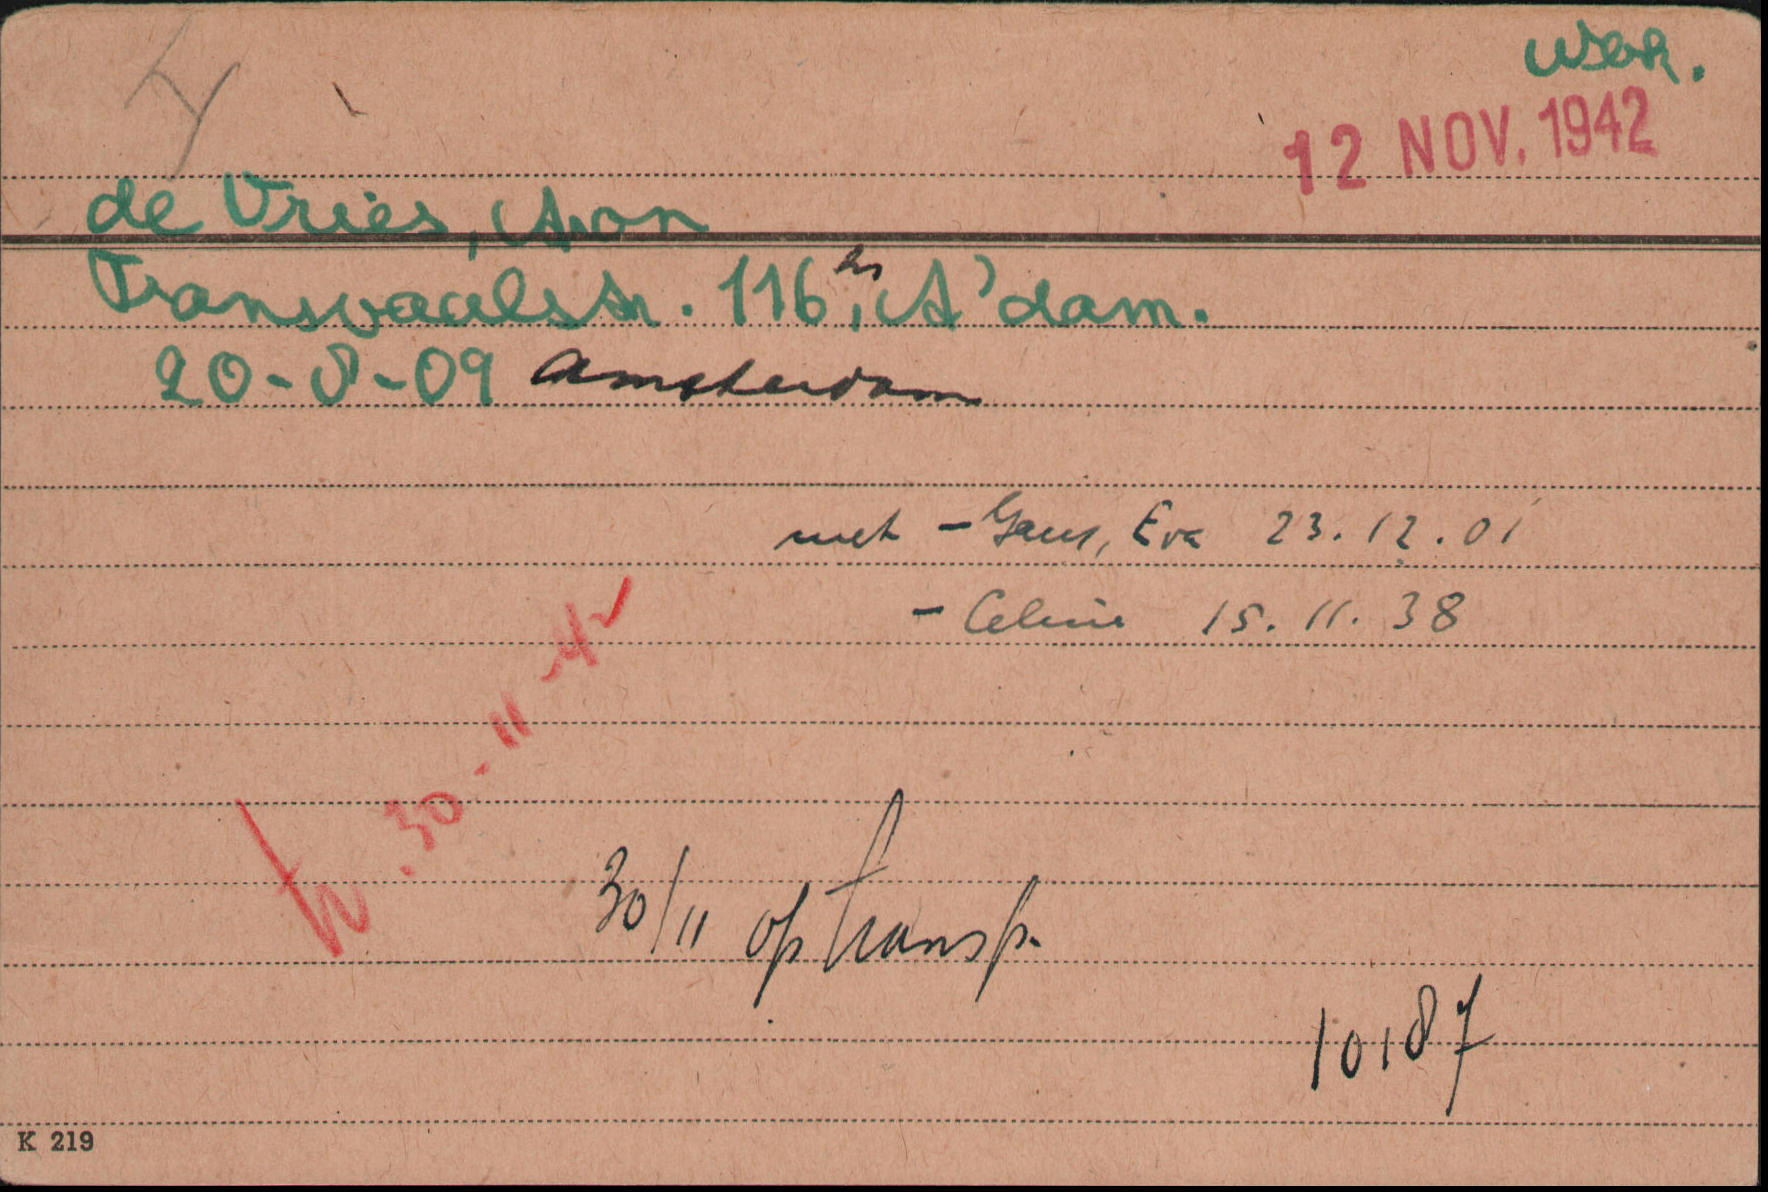 Wbk.
12 NOV. 1942
de Vries, Aron
Transvaalstr. 116 hs, A'dam.
20-8-09 Amsterdam
met - Gans, Eva 23.12.01
- Celine 15.11.38
30-11-42
30/11 op transp.
10187
K 219